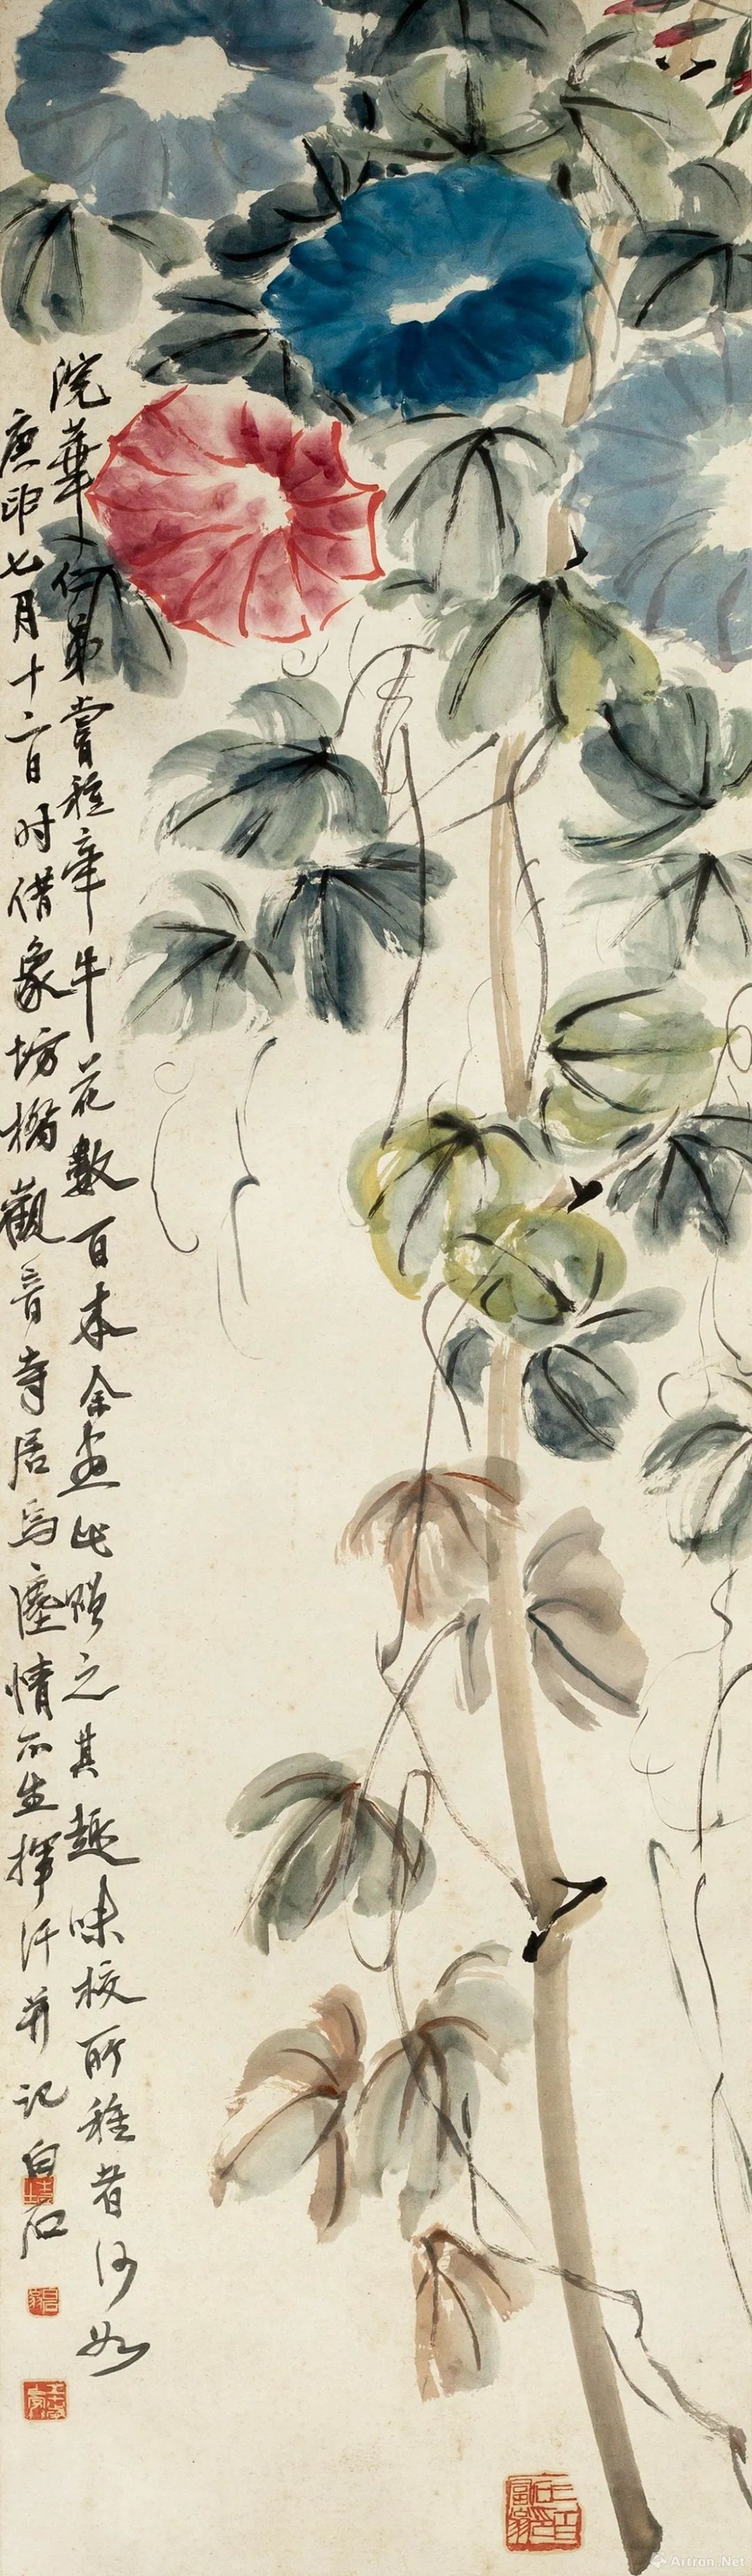 浣華仁弟嘗種牽牛花數百本余畫此贈之其趣味校所種者何如
庚申七月十二日时借象坊橋觀音寺居焉塵情不生揮汗并記白石
Artron.Net